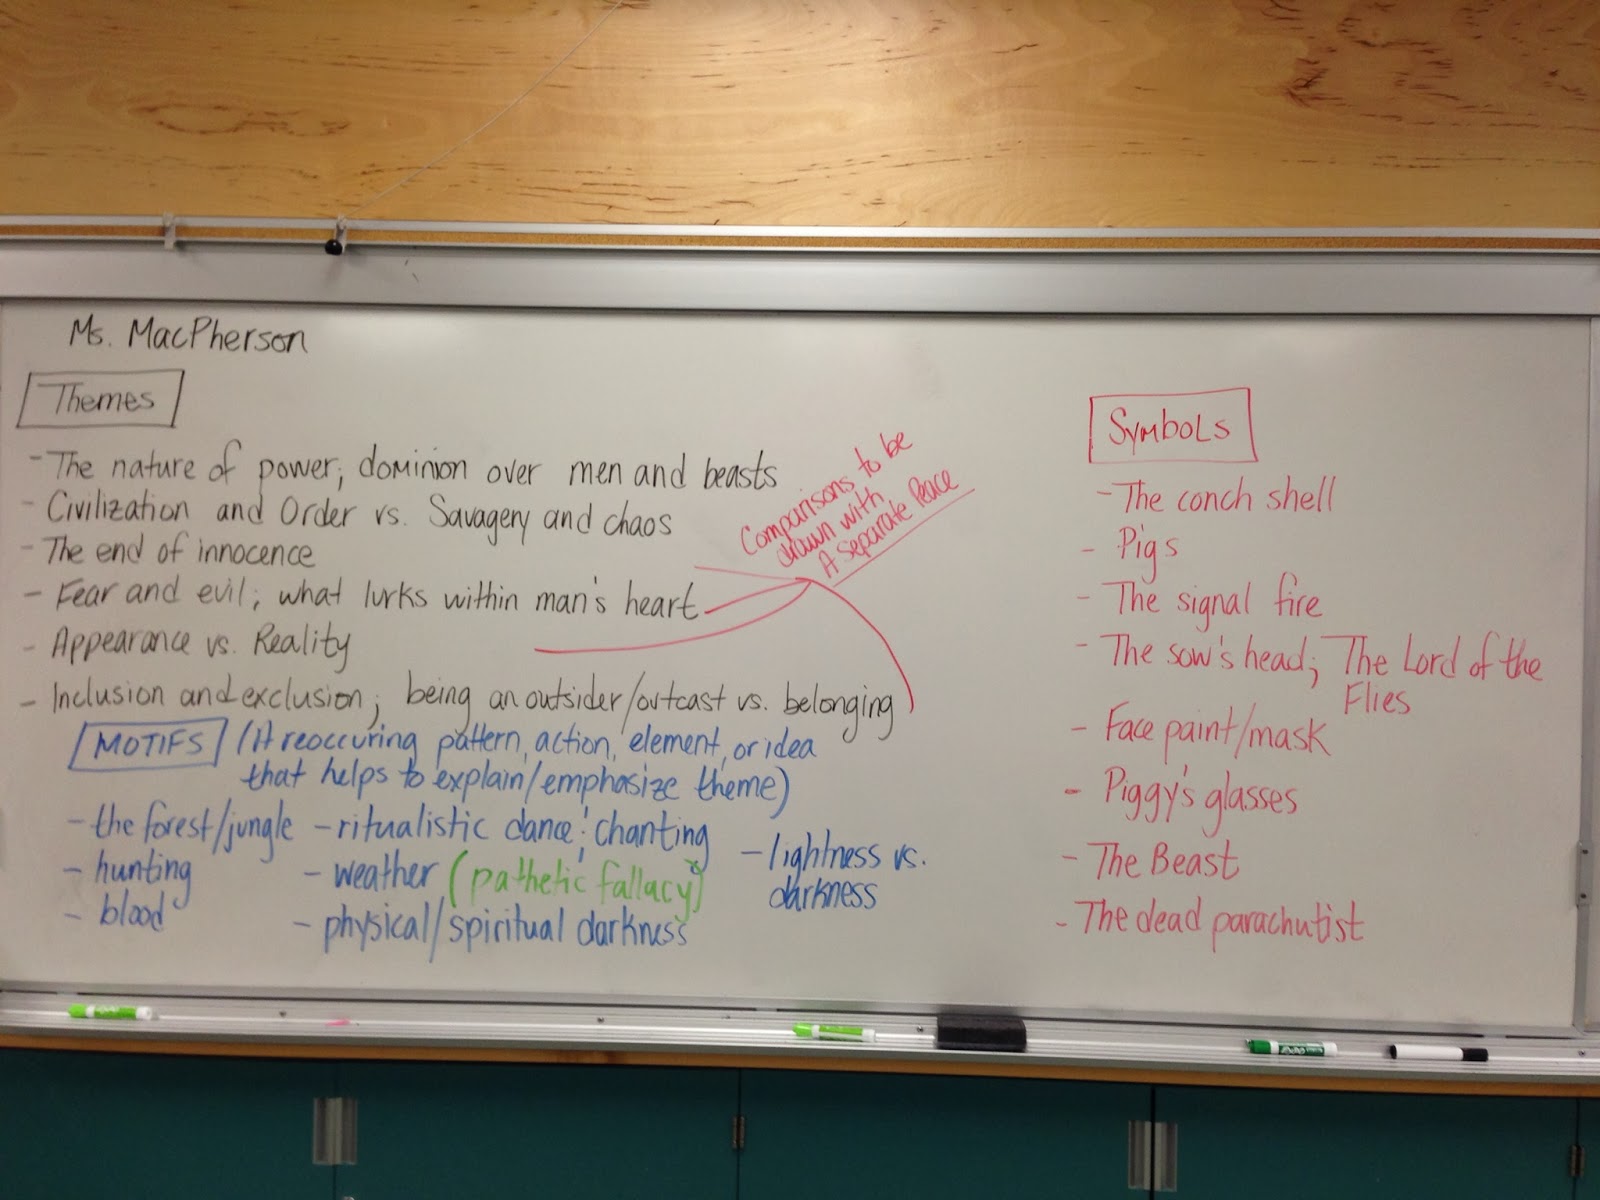 Ms. MacPherson
Themes
- The nature of power; dominion over men and beasts
- Civilization and Order vs. Savagery and chaos
- The end of innocence
- Fear and evil; what lurks within man's heart
- Appearance vs. Reality
- Inclusion and exclusion; being an outsider/outcast vs. belonging
Comparisons to be
drawn with
A Separate Peace
MOTIFS (A reoccuring pattern, action, element, or idea
that helps to explain/emphasize theme)
- the forest/jungle
- hunting
- blood
- ritualistic dance; chanting
- weather (pathetic fallacy)
- physical/spiritual darkness
- lightness vs.
darkness
Symbols
- The conch shell
- Pigs
- The signal fire
- The sow's head; The Lord of the
Flies
- Face paint/mask
- Piggy's glasses
- The Beast
- The dead parachutist
EXPO